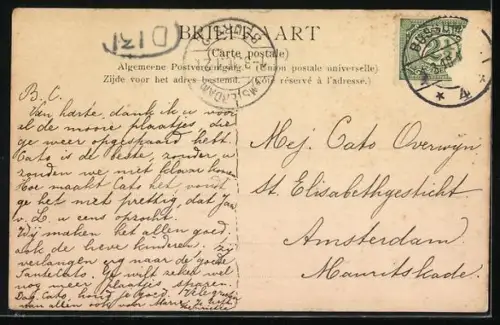 DIZI
BRIEFKAART
(Carte postale)
Algemeene Postvereeniging. (Union postale universelle)
Zijde voor het adres bestemd. (Côté réservé à l'adresse.)
AMSTERDAM
BUSSUM
2½
4
B. C.
Van harte dank ik u voor
al de mooie plaatjes die
ge weer opgespaard hebt.
Cato is de beste, zonder u
zouden we niet klaar komen
Hoe maakt Cato het, vondt
ge het niet prettig dat Jan
v. L. u eens opzocht.
Wij maken het allen goed
ook de lieve kinderen. Zij
verlangen erg naar de goede
Tante Cato. Ge wilt zeker wel
nog meer plaatjes sparen.
Dag Cato, houd je goed.
van allen ook voor Marie
Mej. Cato Overwijn
St. Elisabethgesticht
Amsterdam
Mauritskade.